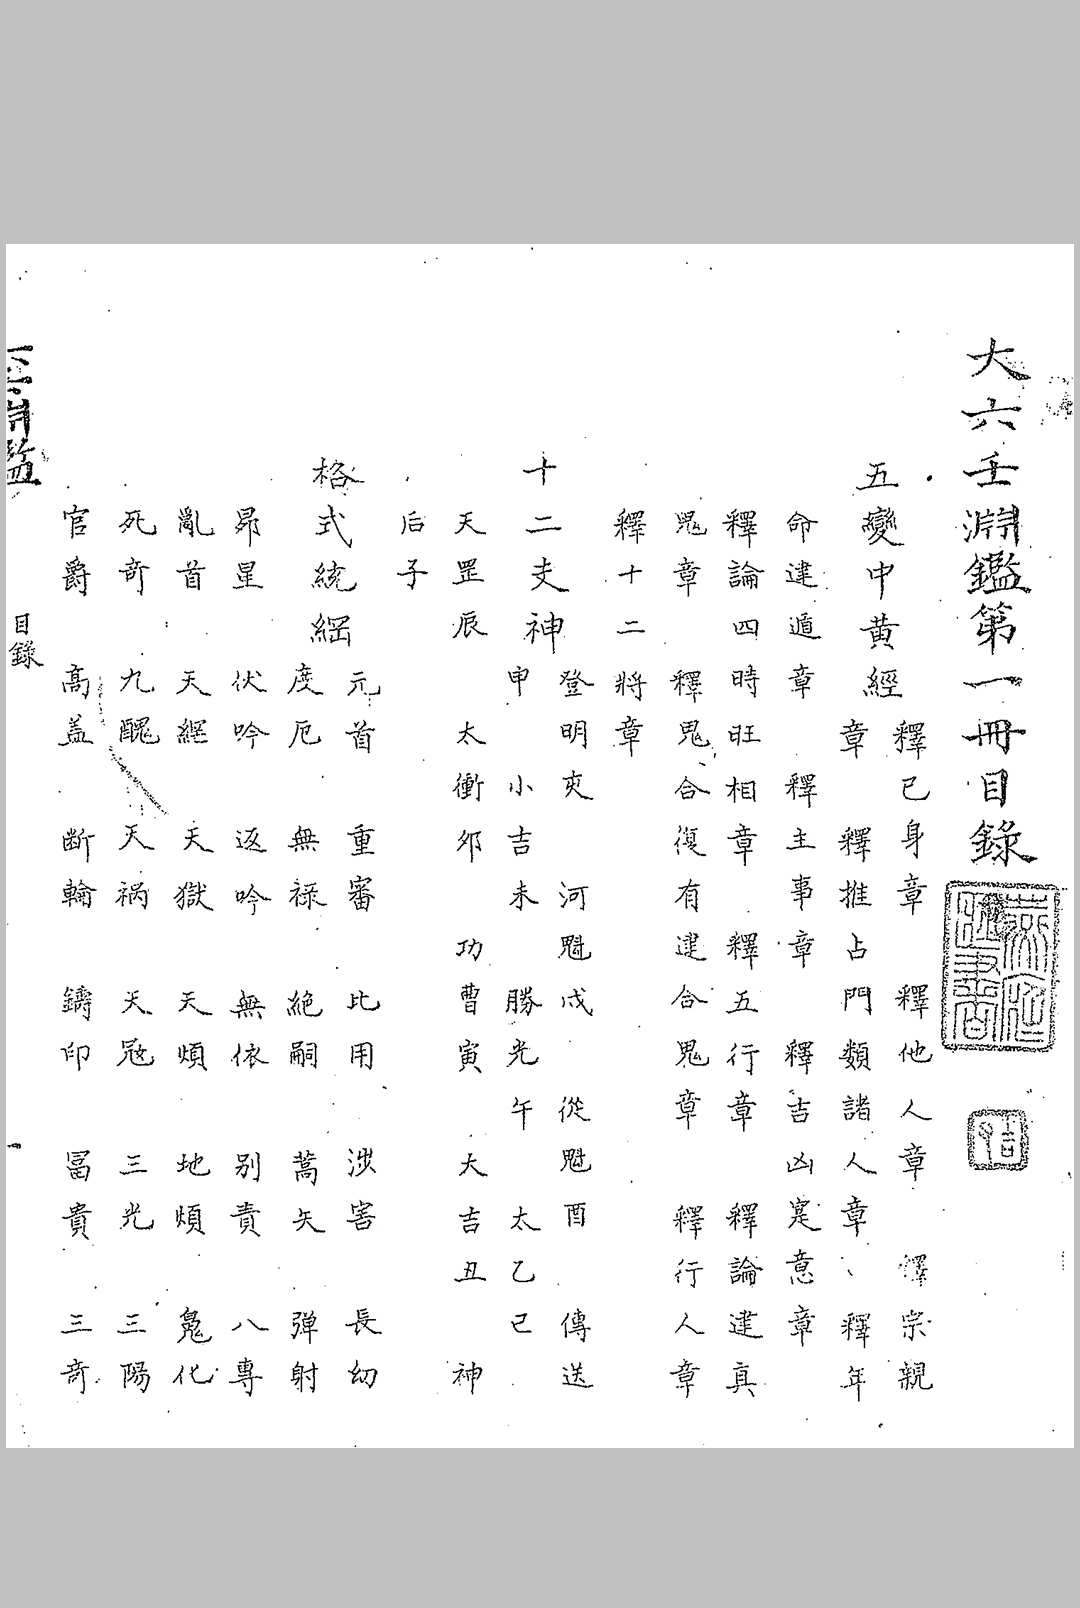 大六壬淵鑑第一冊目錄
五變中黃經 釋己身章 釋他人章 釋宗親
章 釋推占門類諸人章 釋年
命建遁章 釋主事章 釋吉凶寔意章
釋論四時旺相章 釋五行章 釋論建真
鬼章 釋鬼合復有建合鬼章 釋行人章
釋十二將章
十二支神 登明亥 河魁戌 從魁酉 傳送
申 小吉未 勝光午 太乙巳
天罡辰 太衝夘 功曹寅 大吉丑 神
后子
格式統綱 元首 重審 比用 涉害 長幼
度厄 無禄 絶嗣 蒿矢 弹射
昴星 伏吟 返吟 無依 别責 八專
亂首 天網 天獄 天煩 地煩 䰟化
死奇 九醜 天祸 天寇 三光 三陽
官爵 高盖 断輪 鑄印 冨貴 三奇
壬淵鑑
目錄
一